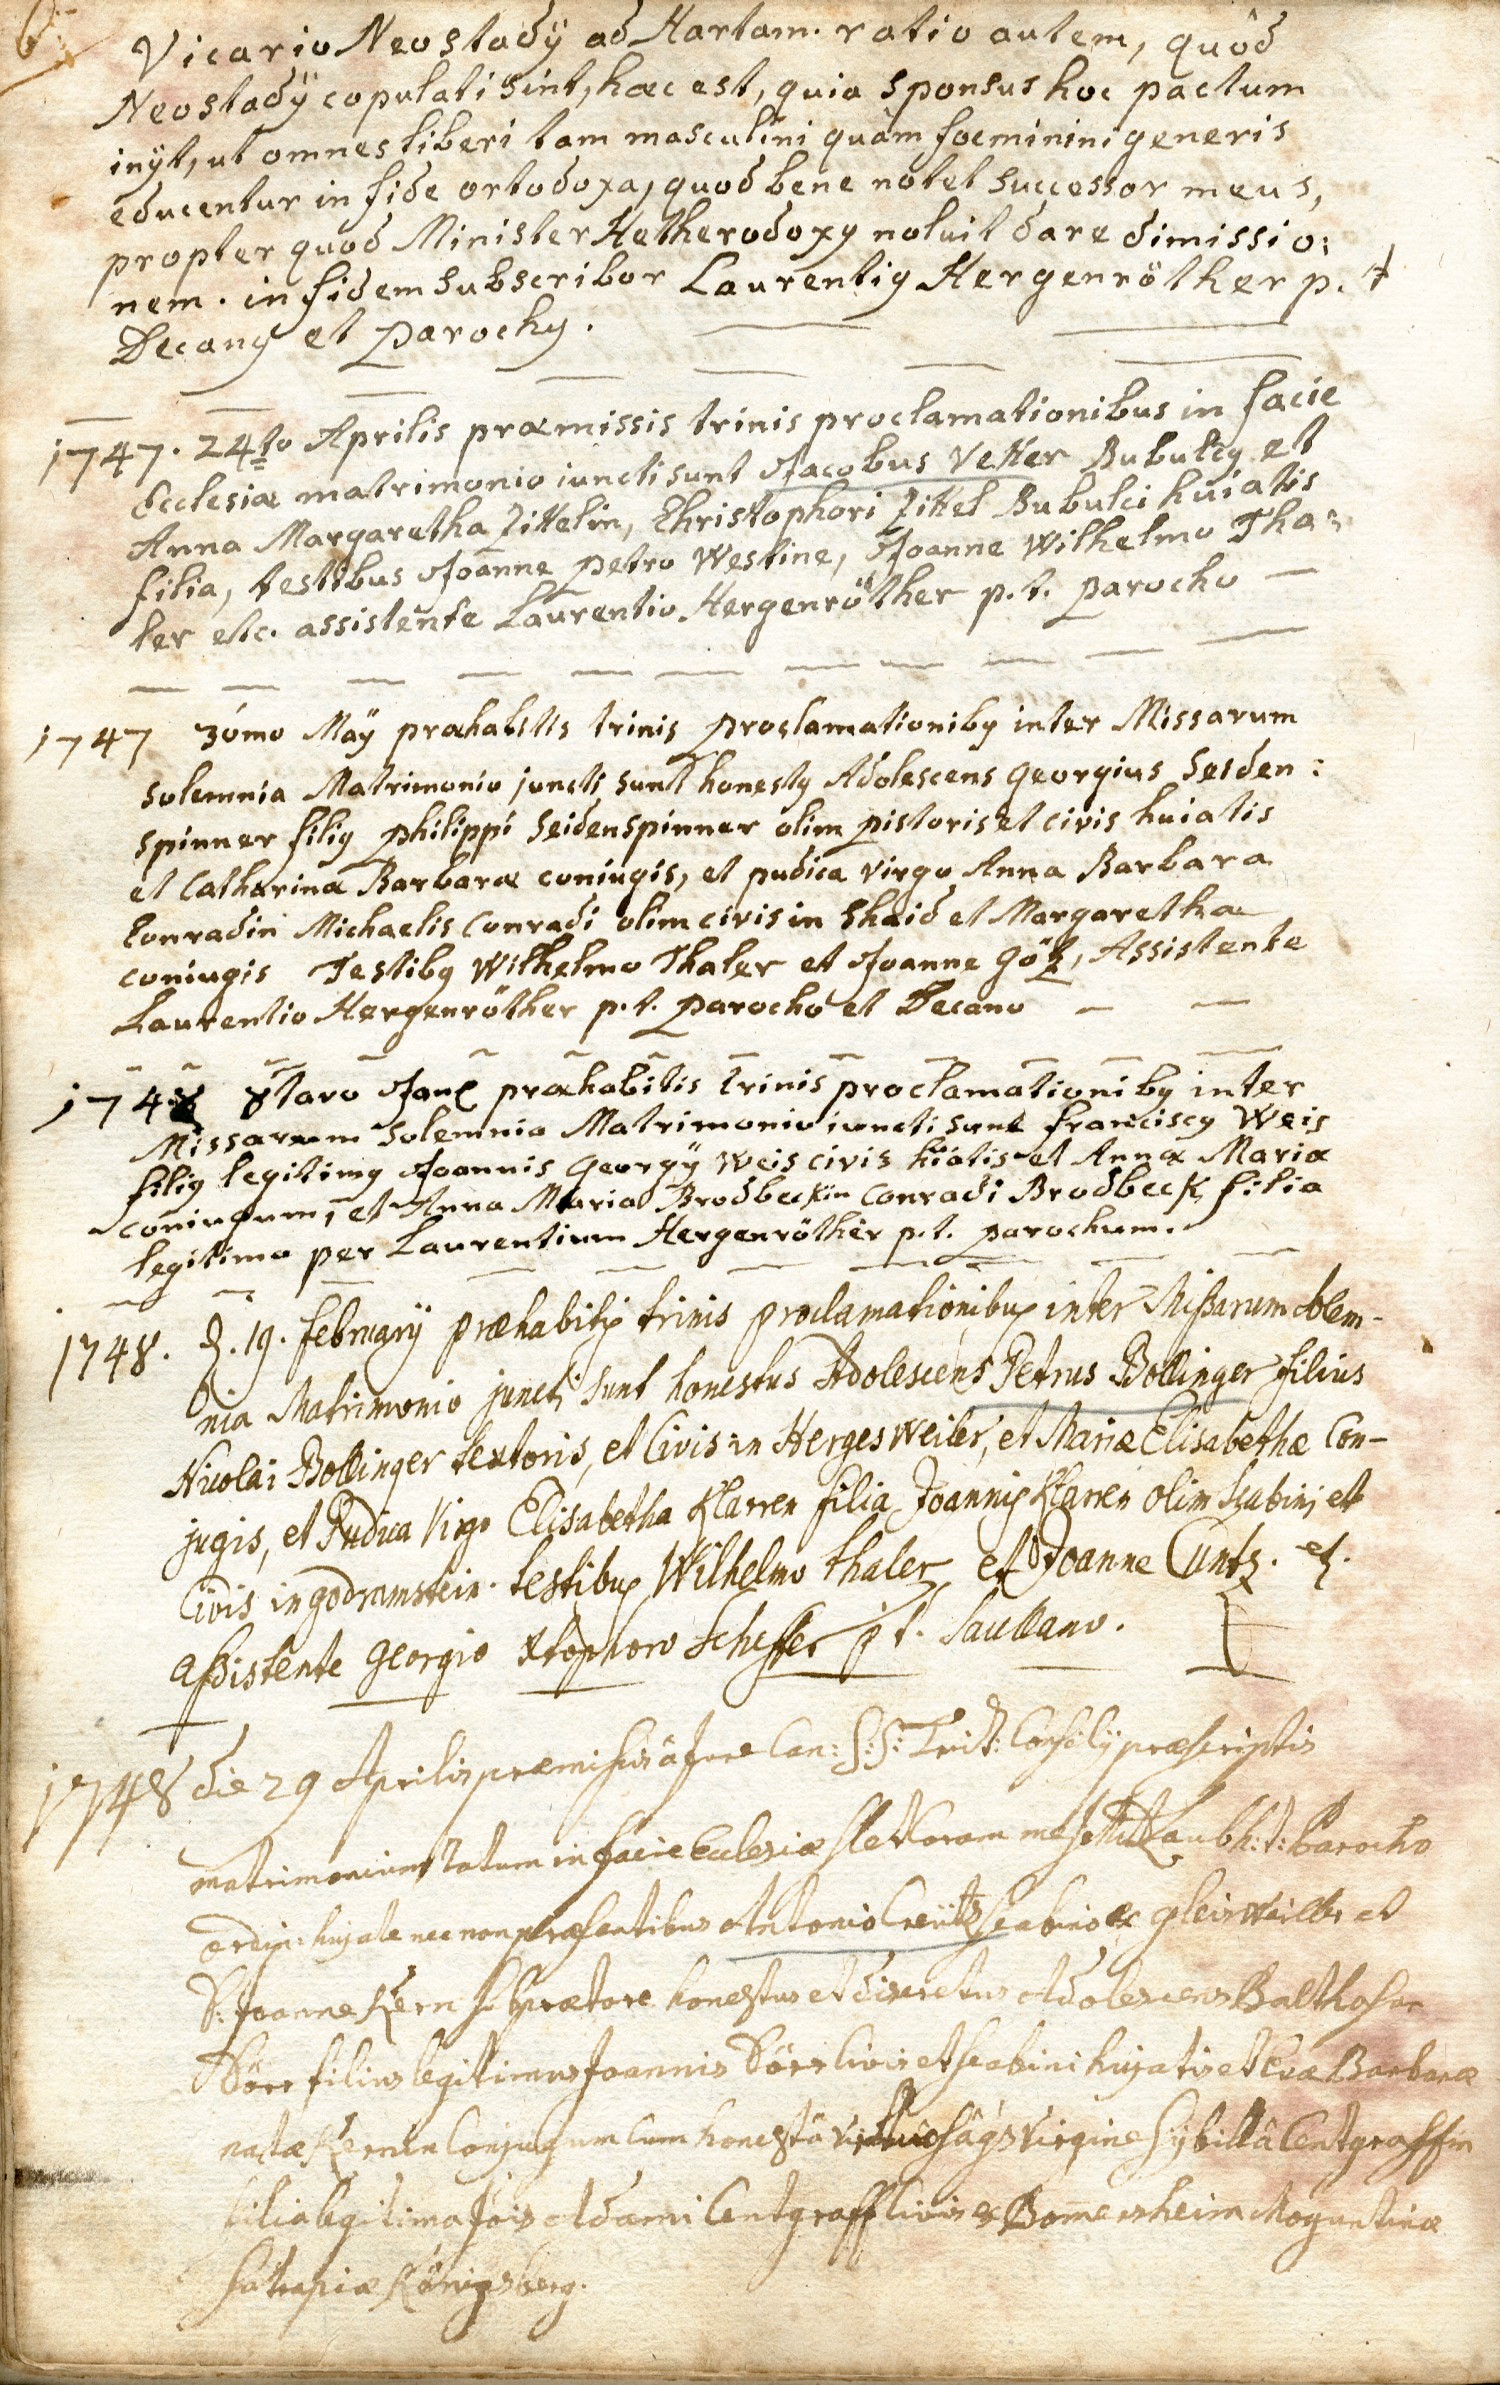 6.
Vicario Neostadÿ ad Hartam. ratio autem, quôd
Neostadÿ copulati sint, haec est, quia sponsus hoc pactum
inÿt, ut omnes liberi tam masculini quàm foeminini generis
educentur in fide ortodoxa, quod bene notet successor meus,
propter quod Minister Hetherodoxy noluit dare dimissio:
nem. in fidem subscribor Laurentiy Hergenröther p. t
Decany et parochy.
1747. 24to Aprilis praemissis trinis proclamationibus in facie
Ecclesiae matrimonio iuncti sunt Jacobus Vetter Bubulcy et
Anna Margaretha Zittelin, Christophori Zittel Bubulci huiatis
filia, testibus Joanne petro Westine, Joanne Wilhelmo Tha:
ler etc. assistente Laurentio Hergenröther p. t. parocho
1747 30mo Maÿ praehabitis trinis proclamationiby inter Missarum
solemnia Matrimonio juncti sunt honesty Adolescens Georgius Seiden:
spinner filiy philippi Seidenspinner olim pistoris et civis huiatis
et Catharinae Barbarae coniugis, et pudica virgo Anna Barbara
Conradin Michaelis Conradi olim civis in Shaid et Margaretha
coniugis Testiby Wilhelmo Thaler et Joanne Götz, Assistente
Laurentio Hergenröther p. t. parocho et Decano
1748 8tavo Jan praehabitis trinis proclamationiby inter
Missarum Solemnia Matrimonio iuncti sunt franciscy Weis
filiy legitimy Joannis Georgÿ Weis civis hiatis et Annae Mariae
coniugum, et Anna Maria Brodbeckin Conradi Brodbeck filia
legitima per Laurentium Hergenröther p. t. parochum.
1748. d. 19. februarÿ praehabitis trinis proclamationibus inter Missarum solem-
nia Matrimonio juncti sunt honestus Adolescens Petrus Bollinger filius
Nicolai Bollinger textoris, et Civis in Hergesweiler, et Mariae Elisabethae Con-
jugis, et Pudica Virgo Elisabetha Klarren filia Joannis Klarren olim scabini et
Civis in godramstein. testibus Wilhelmo thaler et Joanne Cuntz. et.
assistente Georgio Xtophoro Scheffer p. t. Sacellano.
1748 die 29 Aprilis praemissis â Jure Can: S: S: Trid: Consilÿ praescriptis
matrimonium ratum in facie Eclesiae stet Coram me Laub h: t: Parocho
ordin: hujate nec non praesentibus Antonio Creütz scabino ex gleisweiller et
D: Joanne Kern subpraetore honestus et discretus Adolescens Balthasar
Dörr filius legitimus Joannis Dörr Civis et scabini hujatis et Evae Barbarae
natae Kernin Conjugum Cum honestâ virtuosâqs Virgine Sÿbillâ Centgraffin
filia legitima Jois Adami Centgraff Civis ex Bomersheim Moguntinae
satrapiae Königsberg.